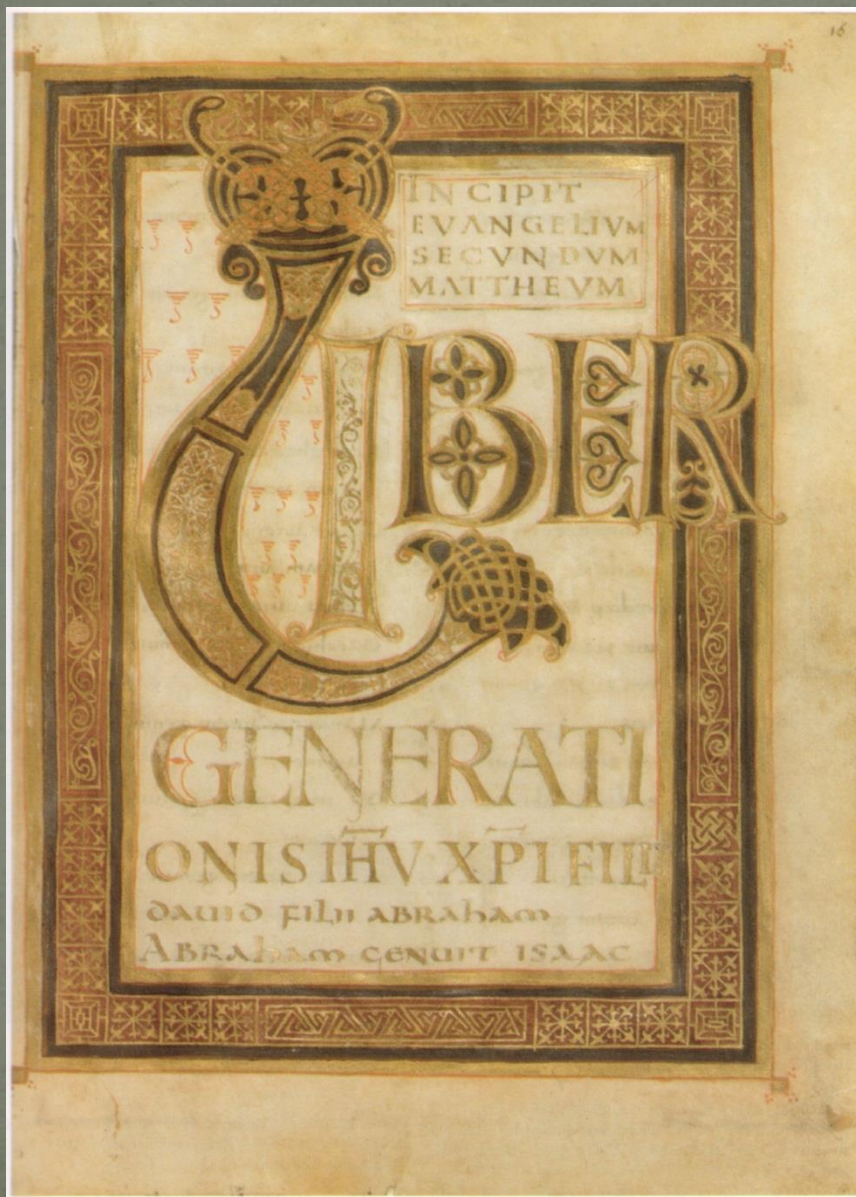 16
INCIPIT
EVANGELIVM
SECVNDVM
MATTHEVM
LIBER
GENERATI
ONIS IH̅V XP̅I FILII
dauid filii abraham
Abraham genuit isaac